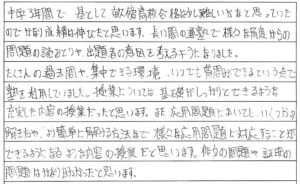 中学3年間で 基として 畝傍高校合格は少し難しいかなと思っていた
のでかなり成績は伸びたと思います。長い間の通塾で様々な角度からの
問題の読みとりや出題者の意図を考えるようになりました。
たくさんの過去問や、集中できる環境、いつでも質問ができるという点で
塾を利用していました。授業については基礎がしっかりとできるような
充実した内容の授業だったと思います。また応用問題においても、いくつかの
解き方や、より簡単に解ける方法などで様々な応用問題に対応することが
できるようになるような内容の授業だと思います。作文の問題や証明の
問題はかなり助かったと思います。